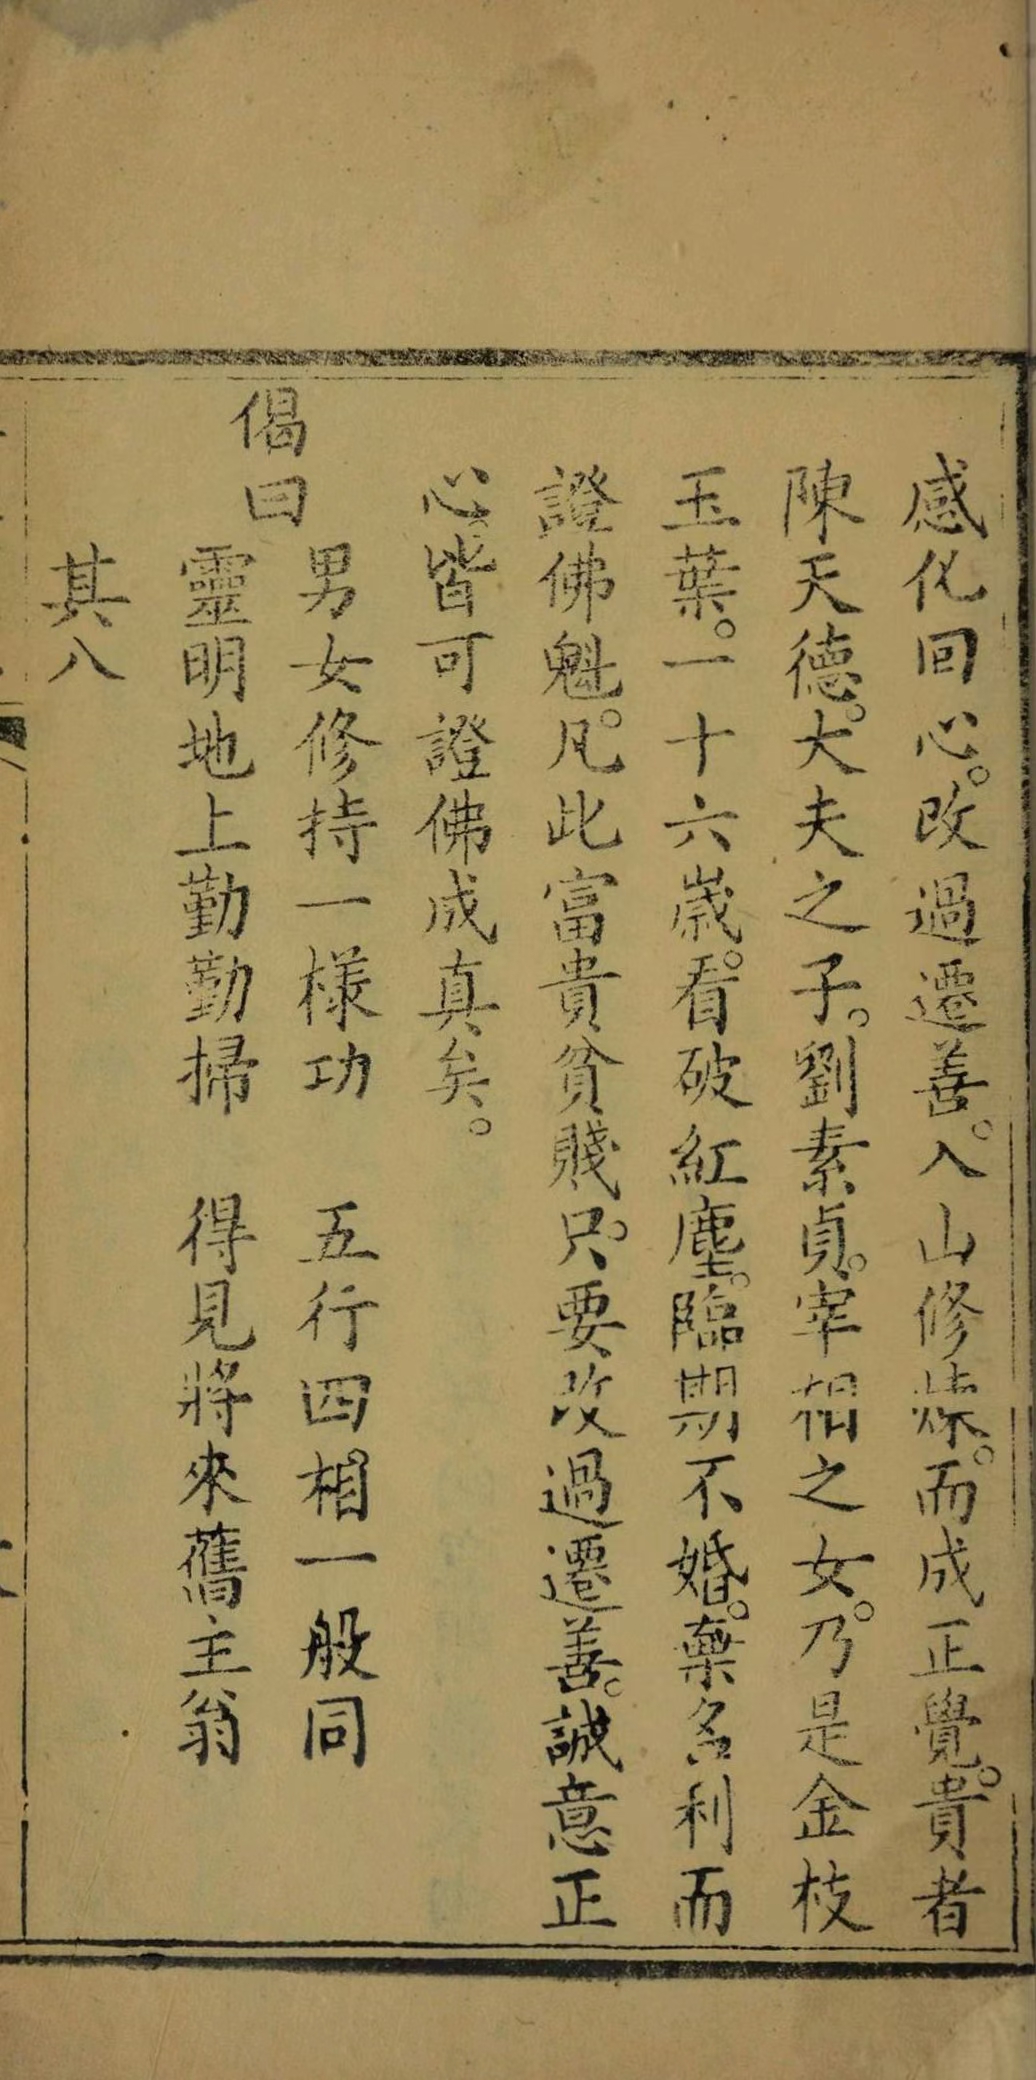 感化回心。改過遷善。入山修煉。而成正覺。貴者
陳天德。大夫之子。劉素貞。宰相之女。乃是金枝
玉葉。一十六歲。看破紅塵。臨期不婚。棄名利而
證佛魁。凡此富貴貧賤。只要改過遷善。誠意正
心。皆可證佛成真矣。
偈曰
男女修持一樣功　五行四相一般同
靈明地上勤勤掃　得見將來舊主翁
其八